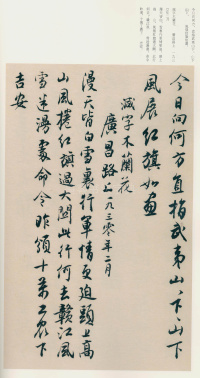 今日向何方直指武夷山下山下
风展红旗如画
减字木兰花
广昌路上一九三〇年二月
漫天皆白雪里行军情更迫头上高
山风卷红旗过大关此行何去赣江风
雪迷漫处命令昨颁十万工农下
吉安